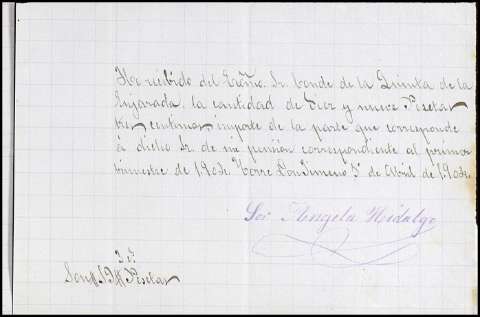 He recibido del Exmo. Sr. Conde de la Quinta de la
Enjarada, la cantidad de Diez y nueve Pesetas
tres centimos importe de la parte que corresponde
á dicho Sr. de mi pensión correspondiente al primer
trimestre de 1904. Torre Don Jimeno 5 de Abril de 1904.
Sor Angela Hidalgo
3 cs
Son 19 Pesetas